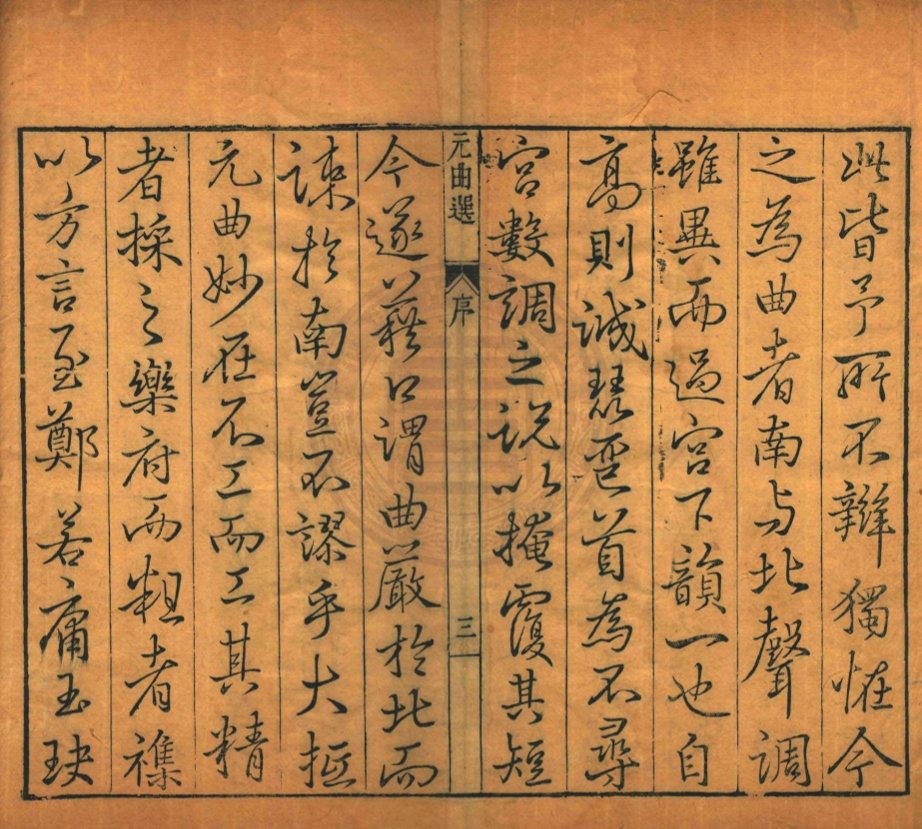 此皆予所不辯獨恠今
之為曲者南与北聲調
雖異而過宮下韻一也自
高則誠琵琶首為不尋
宮數調之說以掩覆其短
元曲選 序 三
今遂藉口謂曲嚴於北而
疎於南豈不謬乎大抵
元曲妙在不工而工其精
者採之樂府而粗者襍
以方言至鄭若庸玉玦